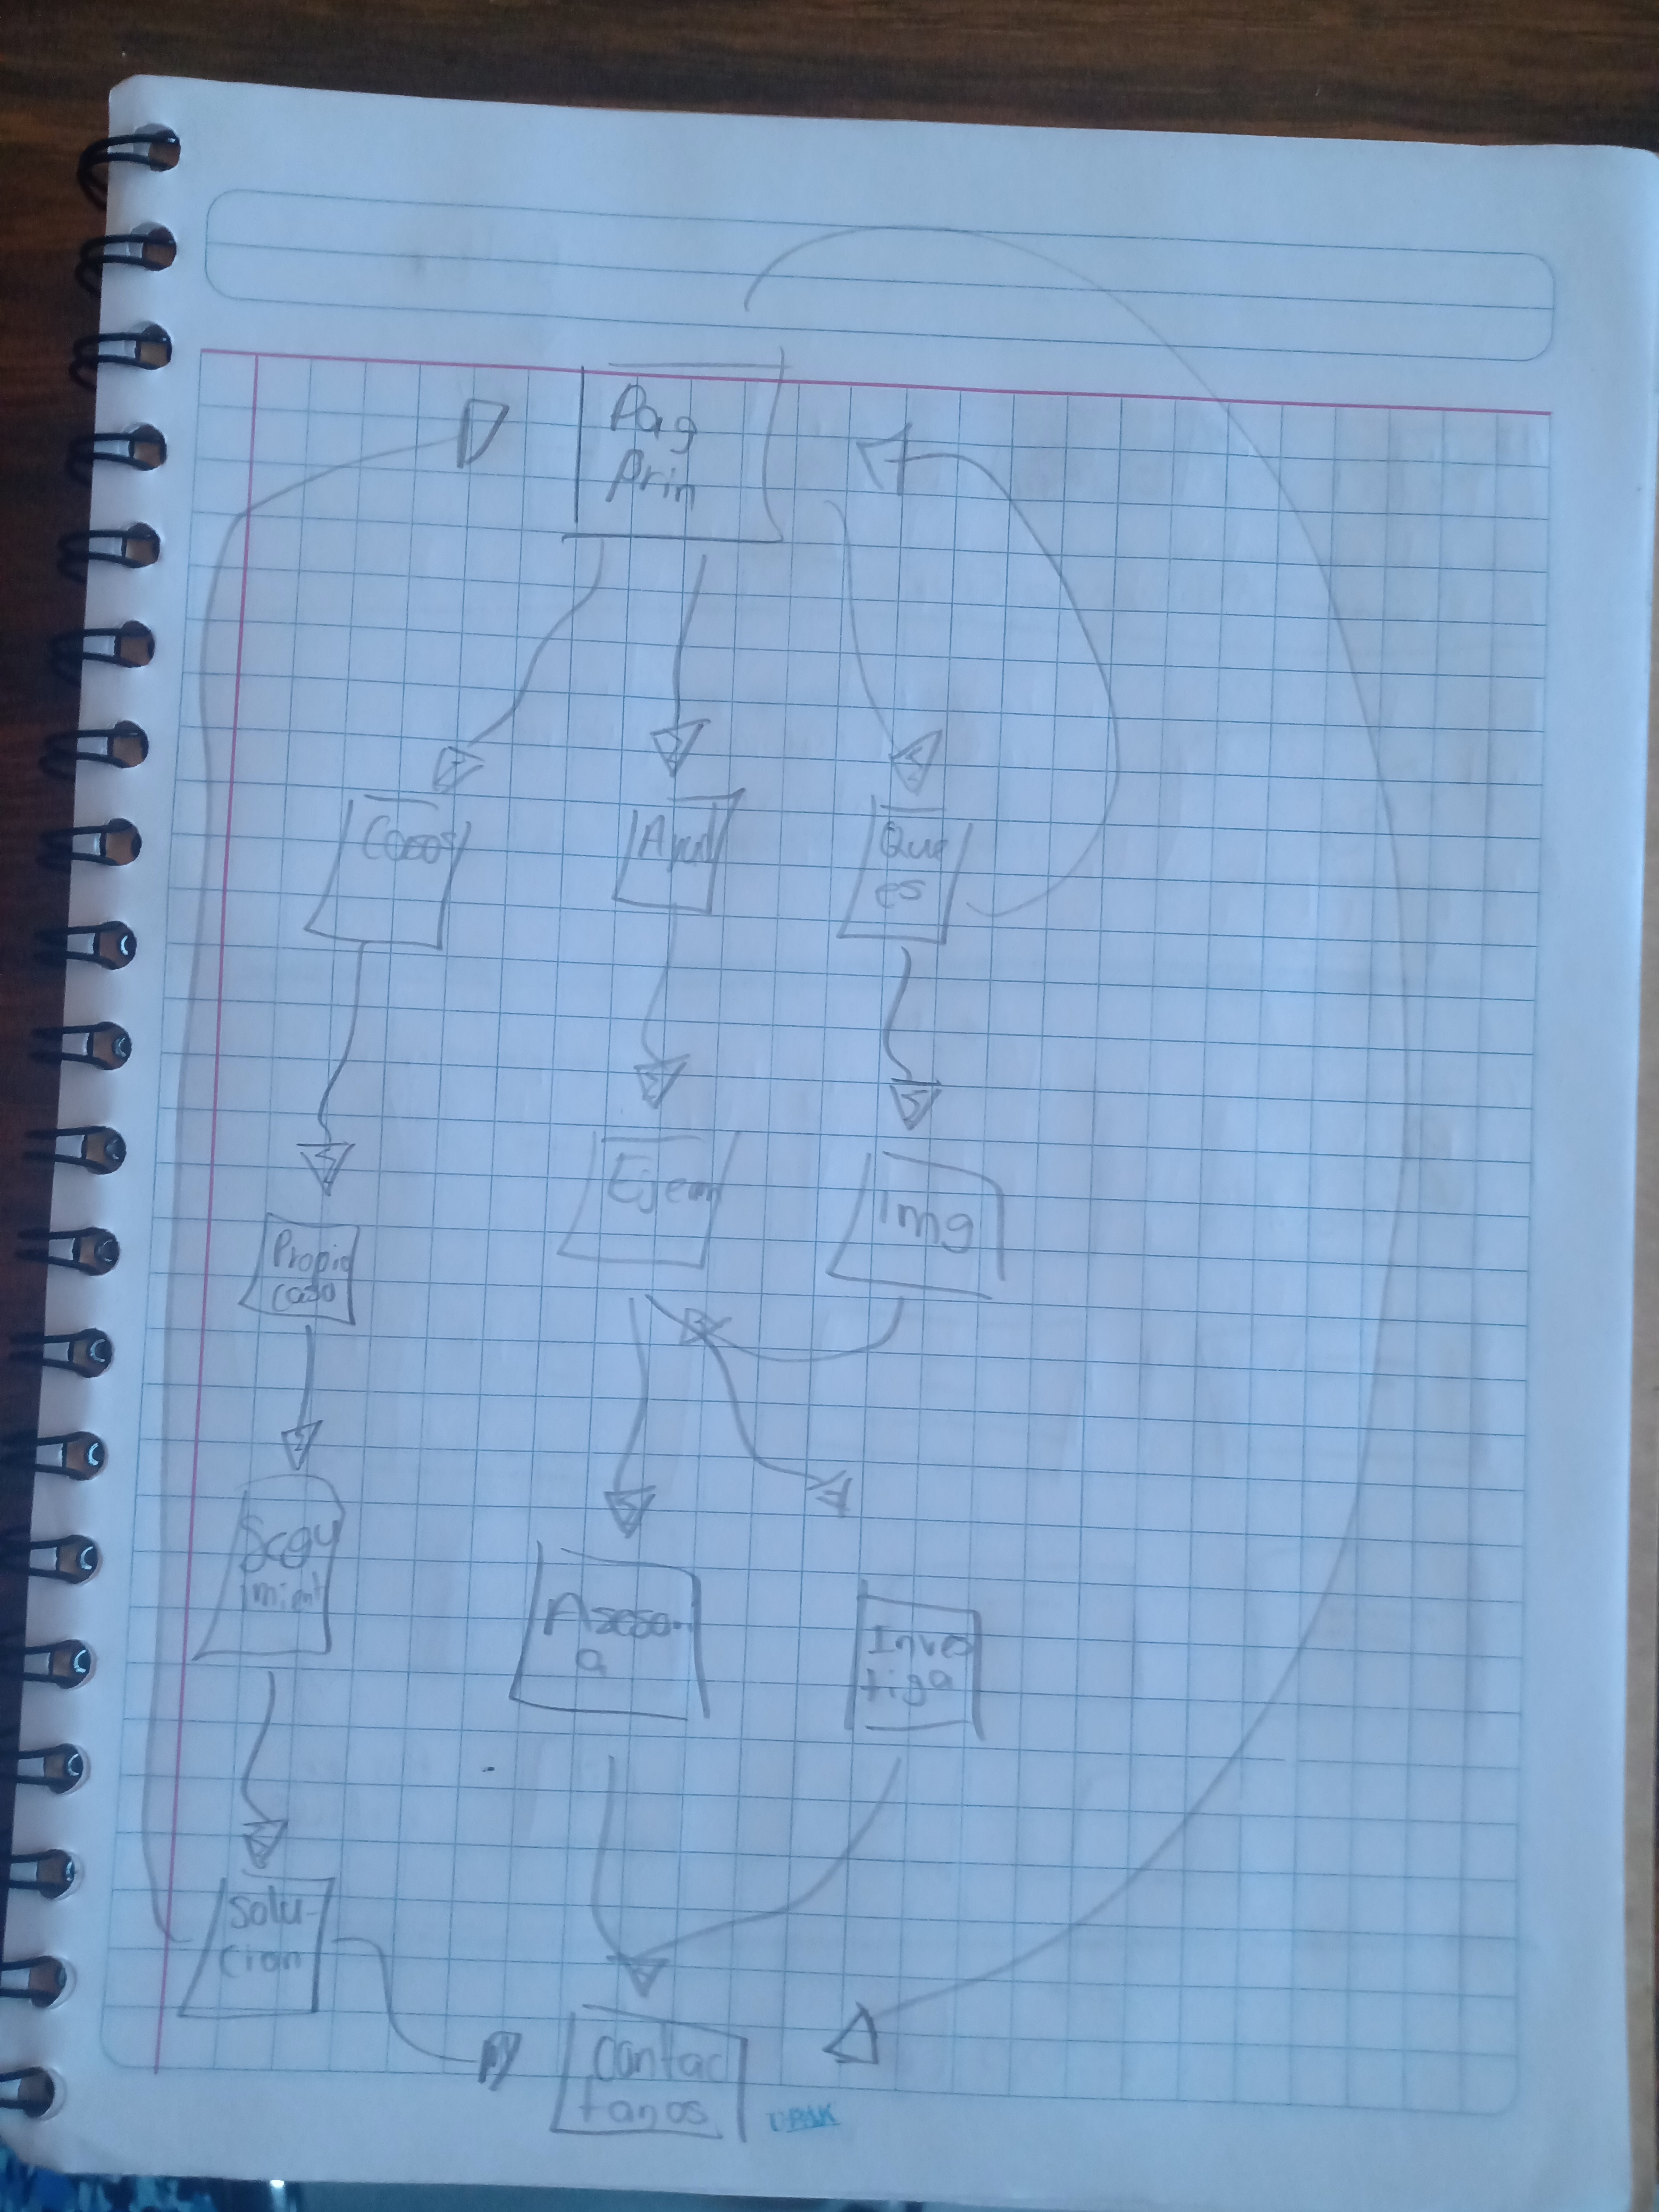 Pag
Prin
Casos
Ayud
Que
es
Ejem
img
Propio
caso
Segu
imient
Asesori
a
Inves
tiga
solu-
cion
contac
tanos
UPAK